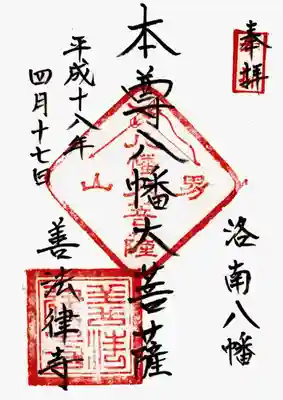 奉拝
洛南八幡
本尊八幡大菩薩
平成十八年
四月十七日
善法律寺
男山
八幡大菩薩
善法律寺